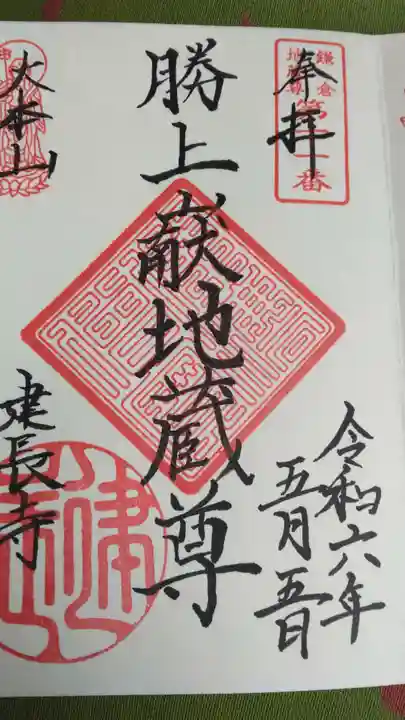 奉拝
鎌倉
地蔵尊
番
勝上嶽地蔵尊
令和六年
五月五日
大本山
建長寺